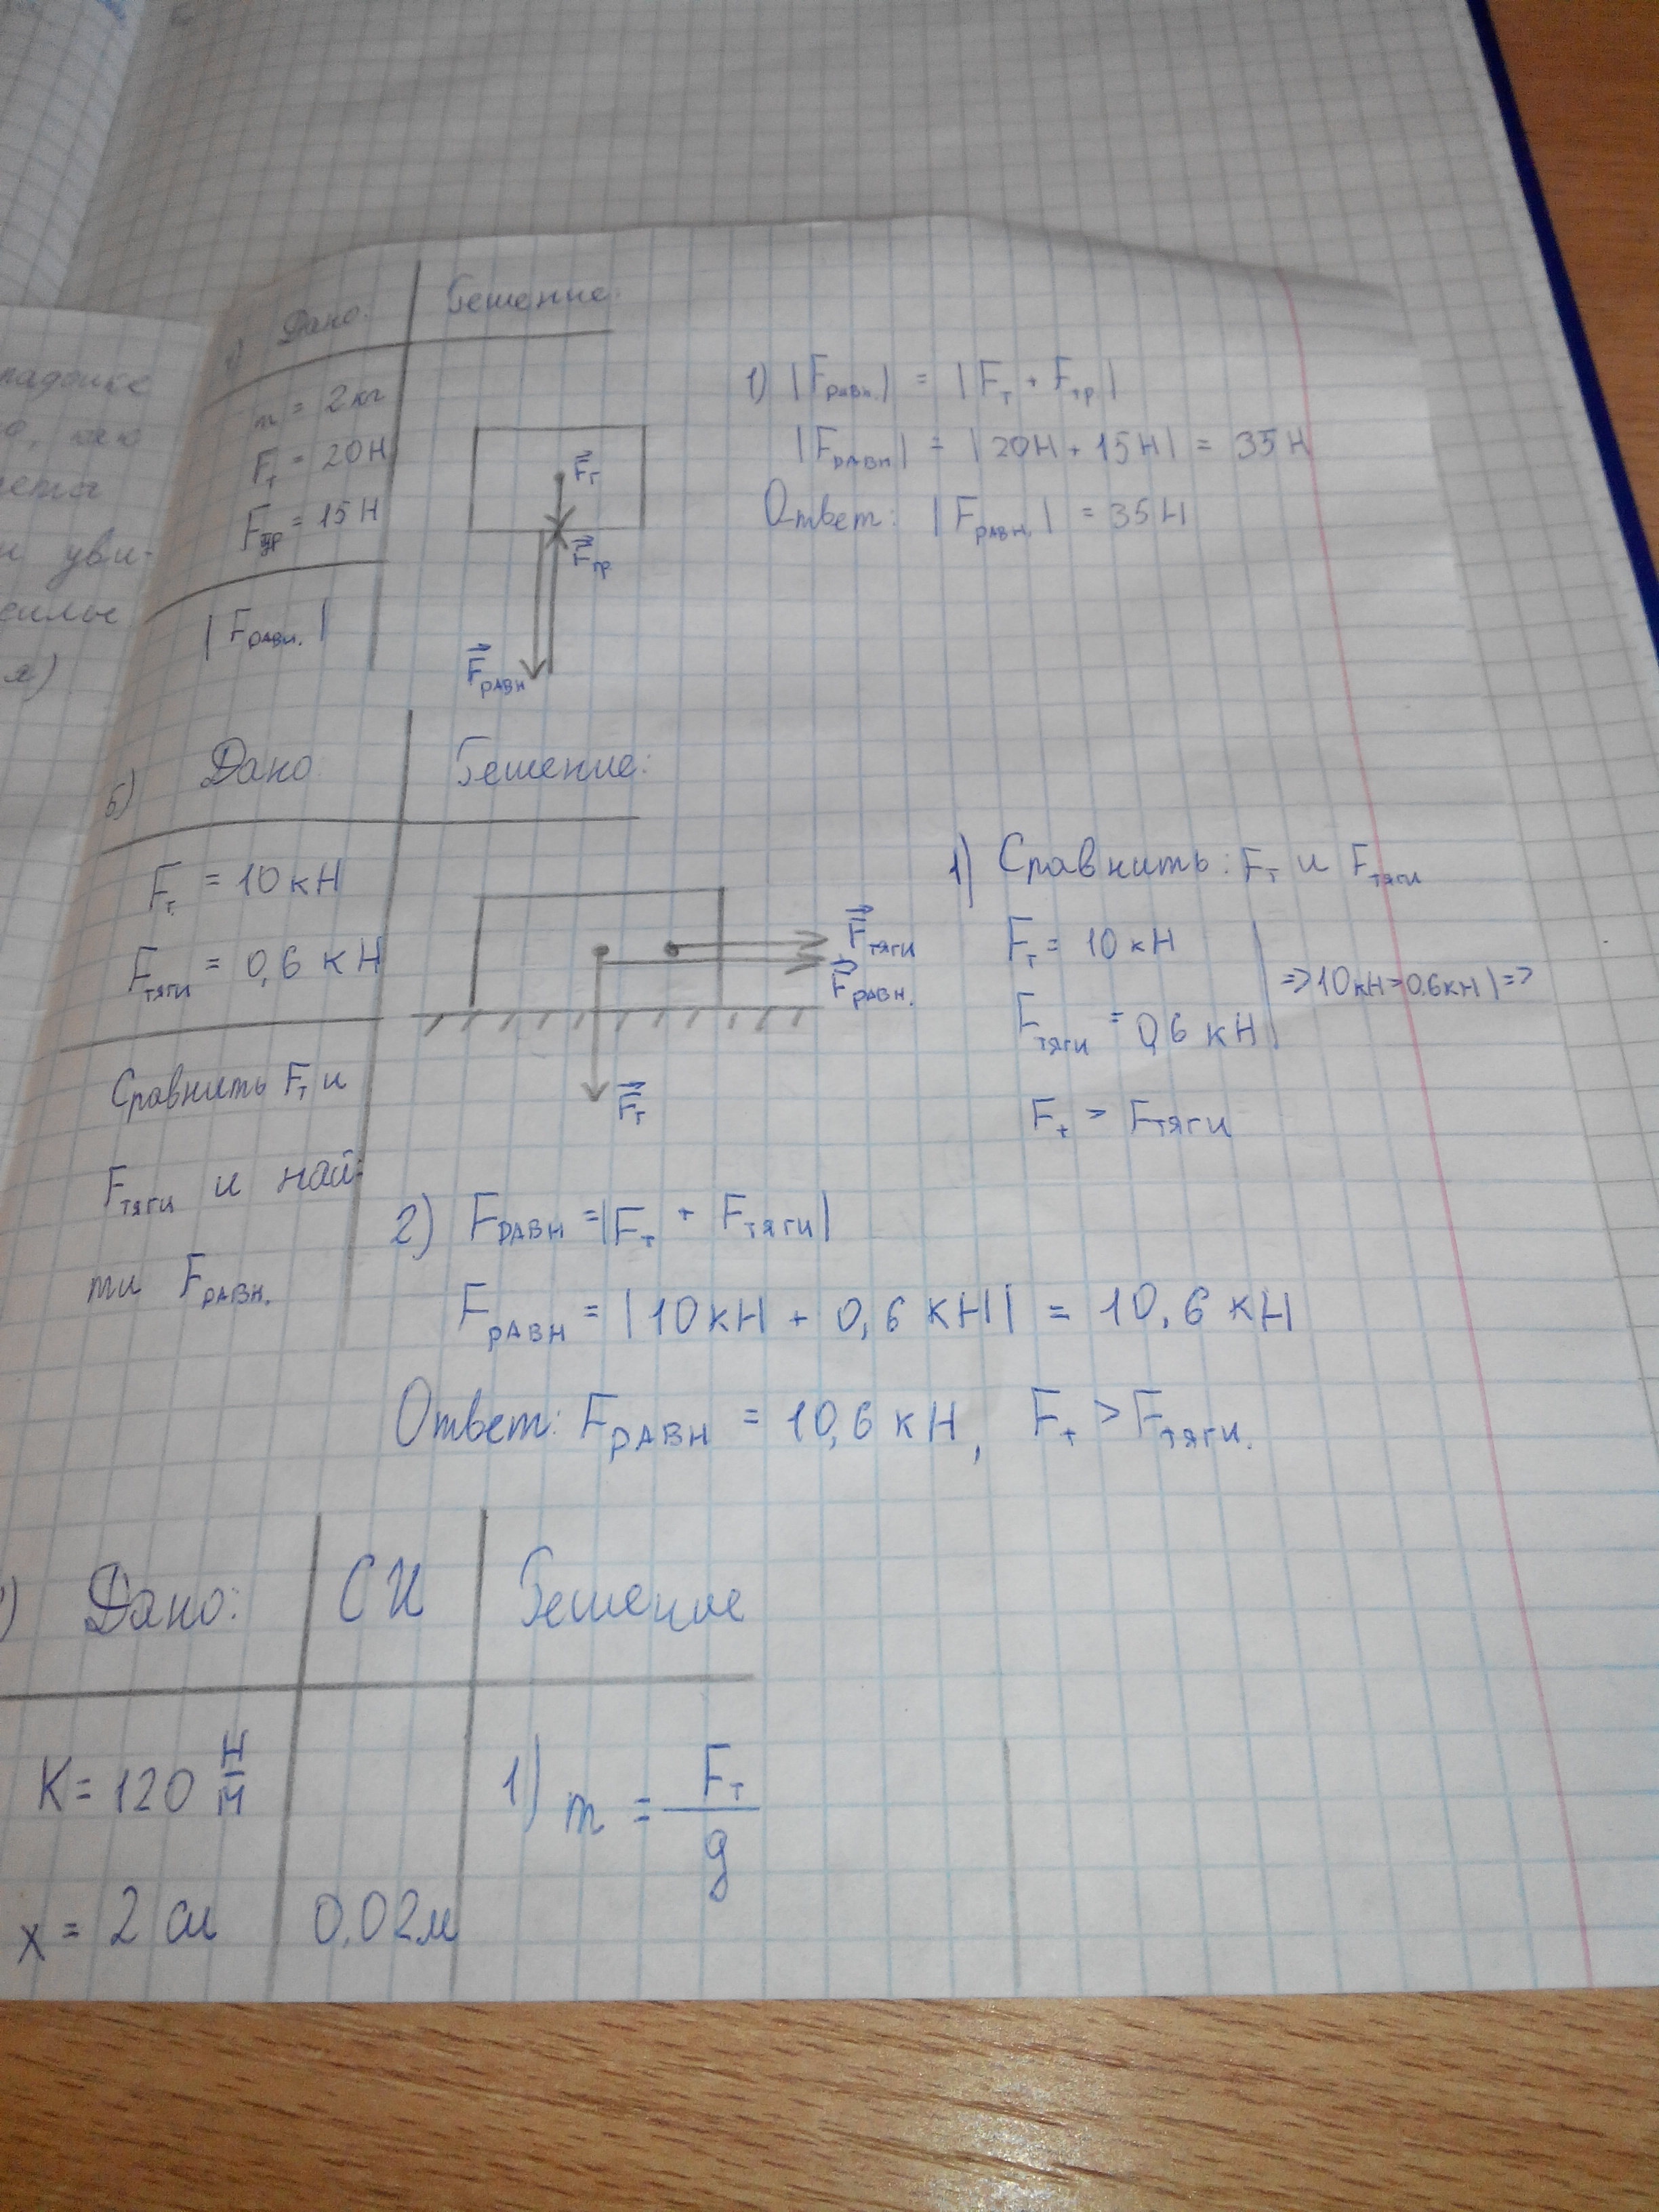 ладошке
уви-
силы
я)
Дано: Решение:
m = 2 кг
Fт = 20 Н
Fпр = 15 Н
|Fравн.|
Fт
Fпр
Fравн
1) |Fравн.| = |Fт + Fпр|
|Fравн| = |20Н + 15Н| = 35 Н
Ответ: |Fравн.| = 35 Н
5) Дано Решение:
Fт = 10 кН
Fтяги = 0,6 кН
Сравнить Fт и
Fтяги и най-
ти Fравн.
Fтяги
Fравн.
Fт
1) Сравнить: Fт и Fтяги
Fт = 10 кН
Fтяги = 0,6 кН
=> 10 кН > 0.6 кН | =>
Fт > Fтяги
2) Fравн = |Fт + Fтяги|
Fравн = |10 кН + 0,6 кН| = 10,6 кН
Ответ: Fравн = 10,6 кН, Fт > Fтяги.
) Дано: СИ Решение
K = 120 Н/м
1) m = Fт/g
x = 2 см 0.02м